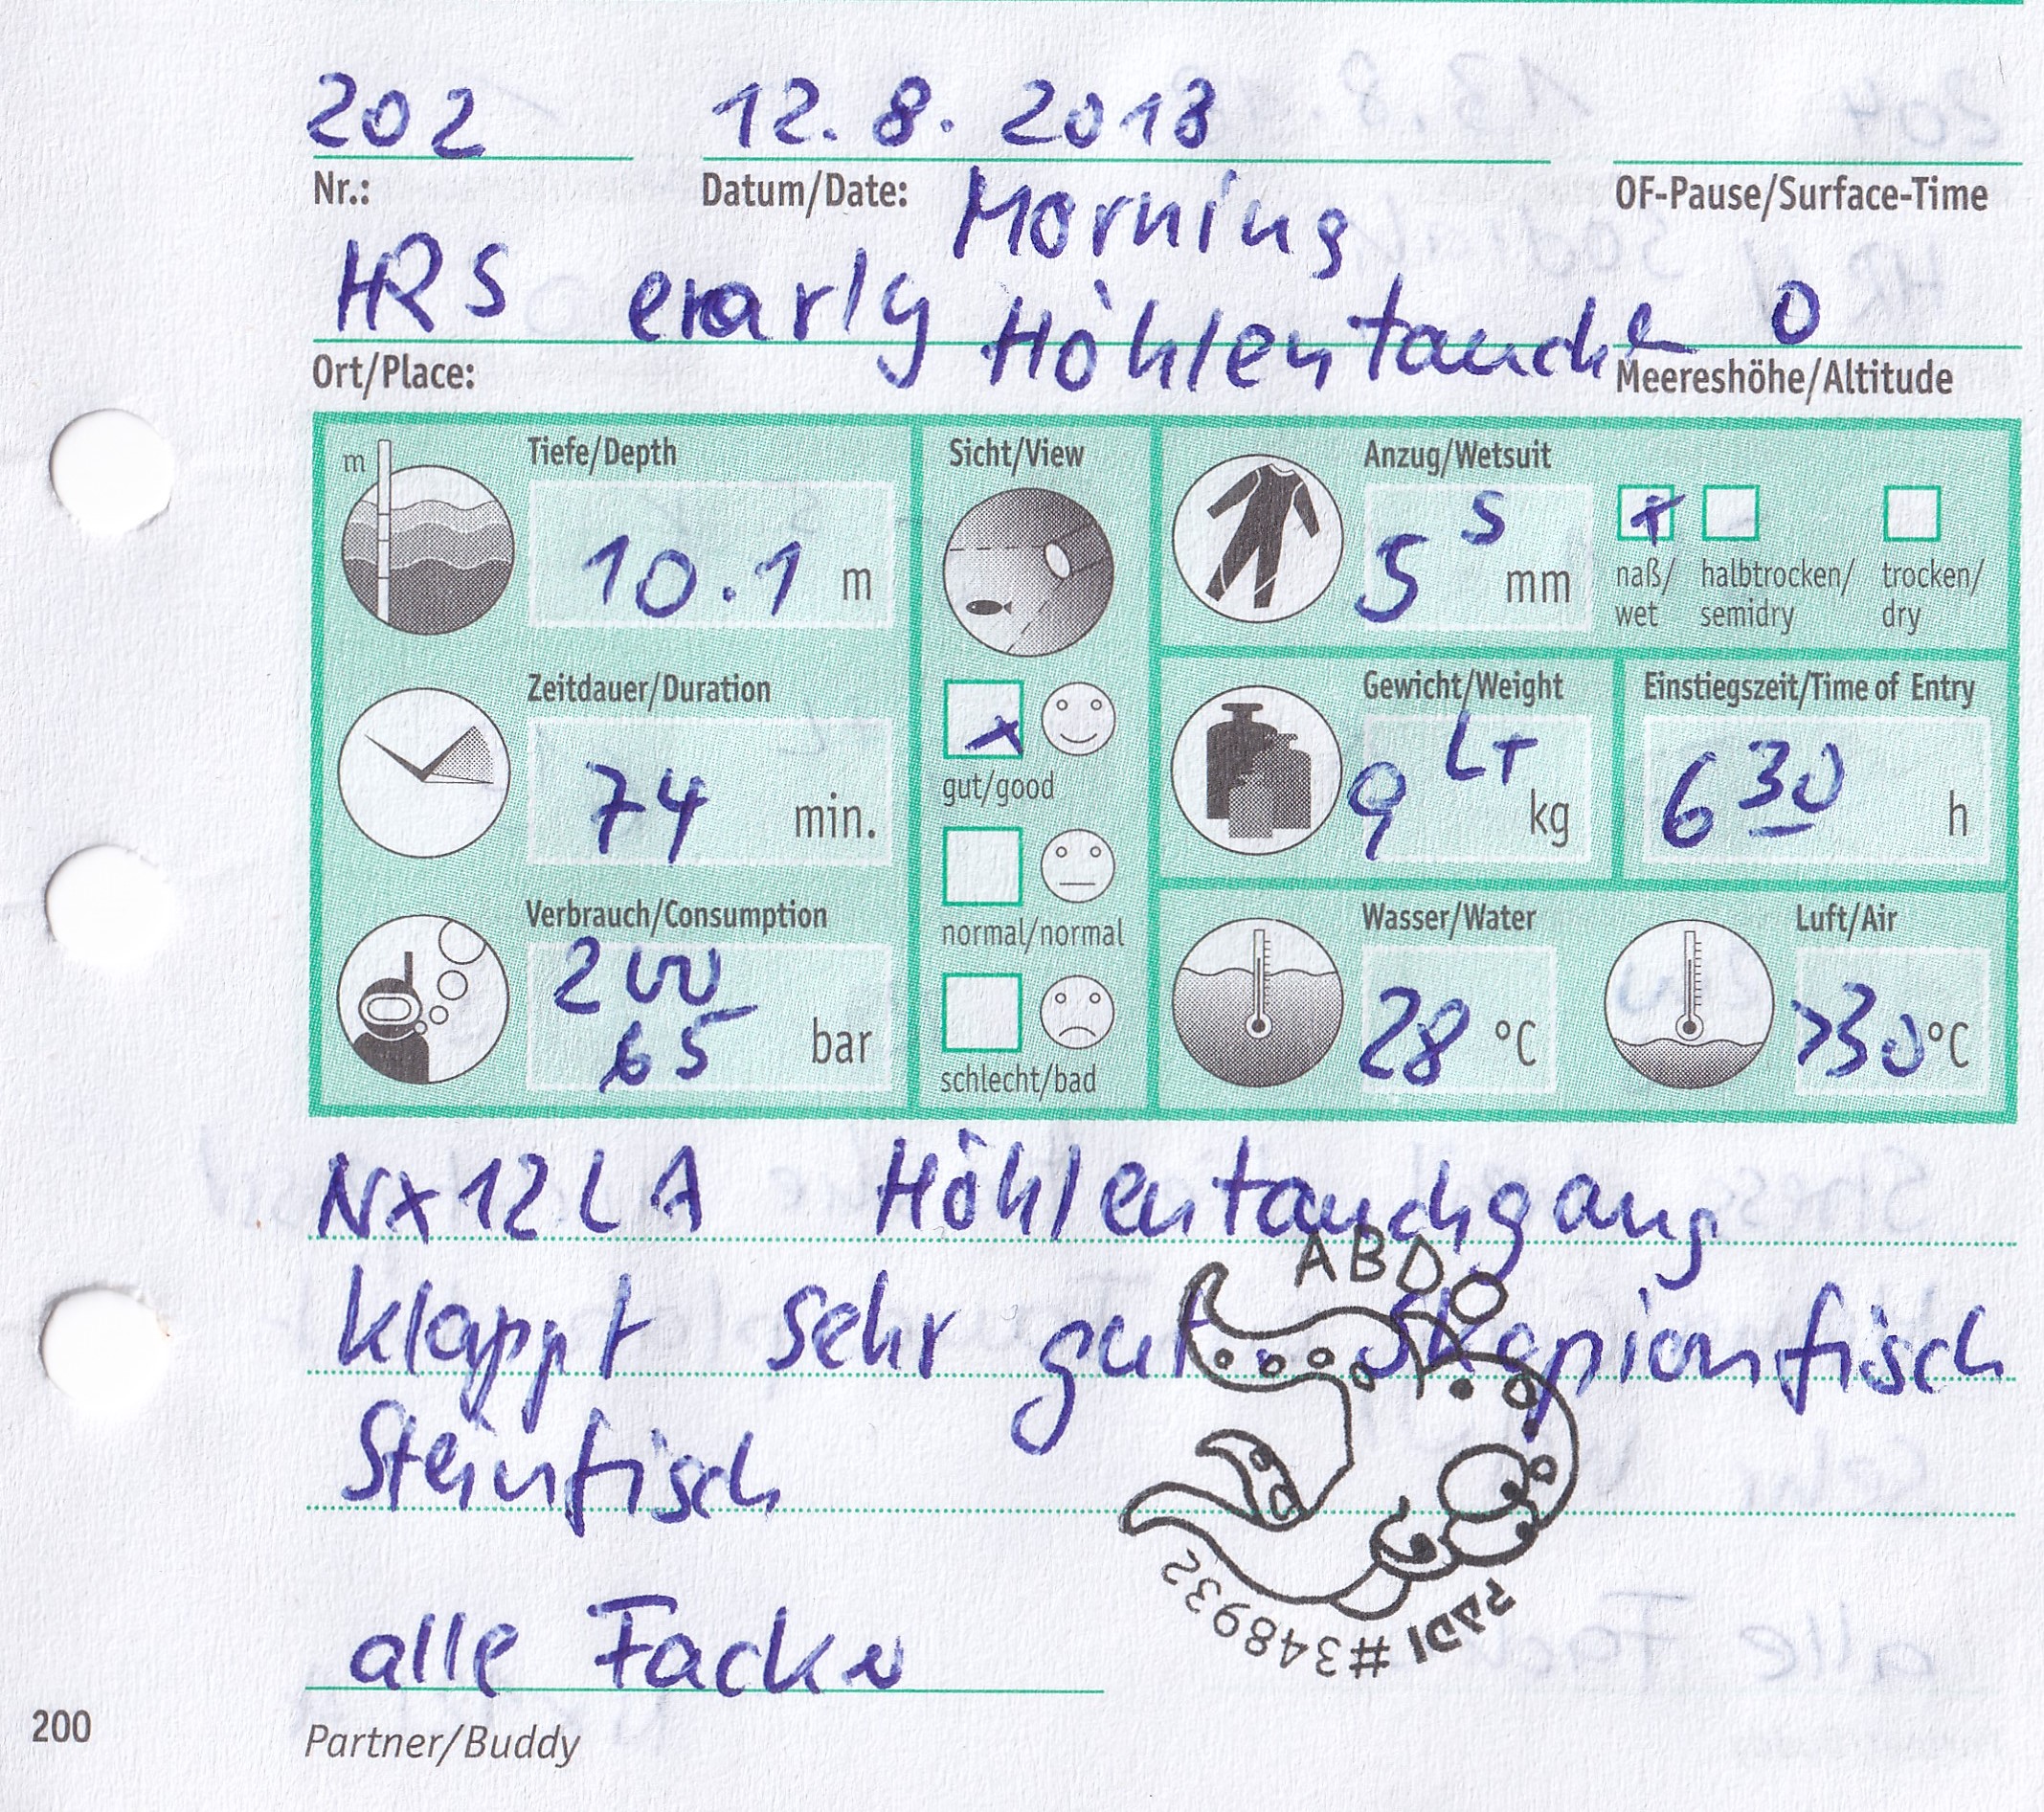 202 12.8.2018
Nr.: Datum/Date: OF-Pause/Surface-Time
Morning
HRS erarly Höhlentauche 0
Ort/Place: Meereshöhe/Altitude
m Tiefe/Depth Sicht/View Anzug/Wetsuit
10.1 m 5 S mm x
naß/wet halbtrocken/semidry trocken/dry
Zeitdauer/Duration Gewicht/Weight Einstiegszeit/Time of Entry
74 min. x 9 LT kg 6 30 h
gut/good
Verbrauch/Consumption Wasser/Water Luft/Air
normal/normal
200
65 bar 28 °C >30 °C
schlecht/bad
NX12LA Höhlentauchgang
klappt sehr gut. Skopionfisch
Steinfisch
ABDO
PADI #3489932
alle Facker
200 Partner/Buddy